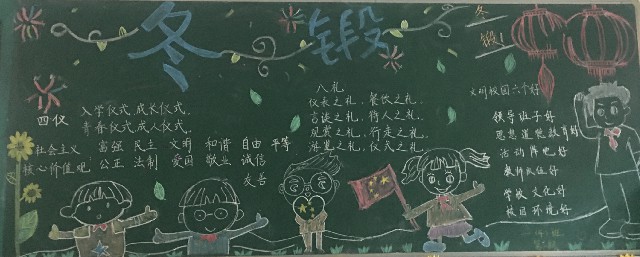 冬锻
冬
锻！
四仪
入学仪式，成长仪式，
青春仪式，成人仪式。
社会主义
核心价值观
富强 民主 文明 和谐 自由 平等
公正 法制 爱国 敬业 诚信
友善
八礼
仪表之礼，餐饮之礼，
言谈之礼，待人之礼，
观赏之礼，行走之礼，
游览之礼，仪式之礼。
文明校园六个好
领导班子好
思想道德教育好
活动阵地好
教师队伍好
学校文化好
校园环境好